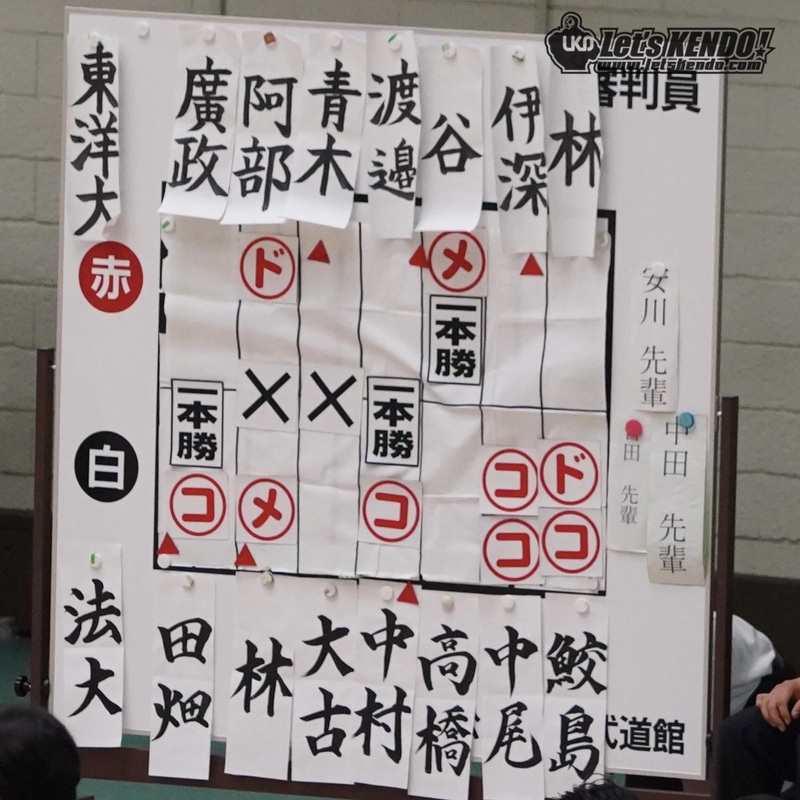 UKD Let's KENDO!
www.letskendo.com
審判員
東洋大
廣政
阿部
青木
渡邉
谷
伊深
林
赤
白
ド
メ
一本勝
一本勝
一本勝
コ
メ
コ
コ
ド
コ
コ
安川 先輩
田 先輩
中田 先輩
法大
田畑
林
大古
中村
高橋
中尾
鮫島
武道館